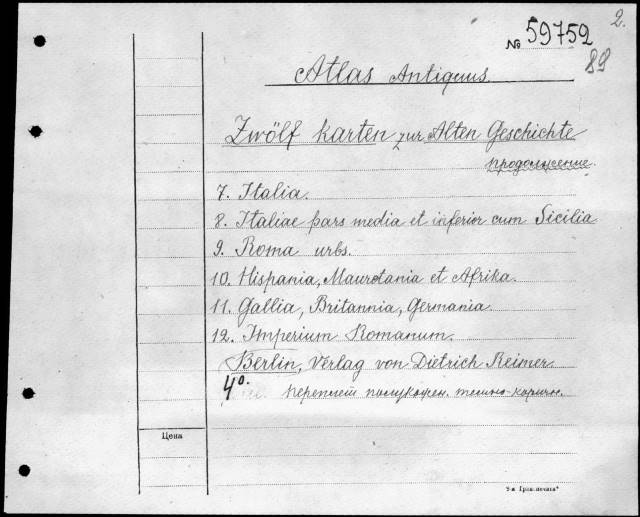 2.
№ 59752
89
Atlas Antiquus.
Zwölf karten zur Alten Geschichte
продолжение.
7. Italia.
8. Italiae pars media et inferior cum Sicilia
9. Roma urbs.
10. Hispania, Mauretania et Afrika.
11. Gallia, Britannia, Germania.
12. Imperium Romanum.
Berlin, Verlag von Dietrich Reimer.
4º. переплет полукожен. темно-коричн.
Цена